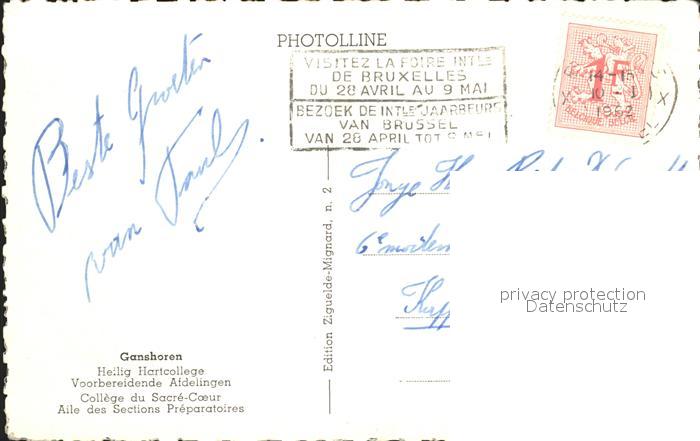 PHOTOLLINE
VISITEZ LA FOIRE INTLE
DE BRUXELLES
DU 28 AVRIL AU 9 MAI
BEZOEK DE INTLE JAARBEURS
VAN BRUSSEL
VAN 28 APRIL TOT 9 MEI
14-15
10-1
1962
1F
BELGIQUE-BELGIE
Beste Groeten
van Paul
Jonge
6e
Edition Ziguelde-Mignard, n. 2
privacy protection
Datenschutz
Ganshoren
Heilig Hartcollege
Voorbereidende Afdelingen
Collège du Sacré-Cœur
Aile des Sections Préparatoires